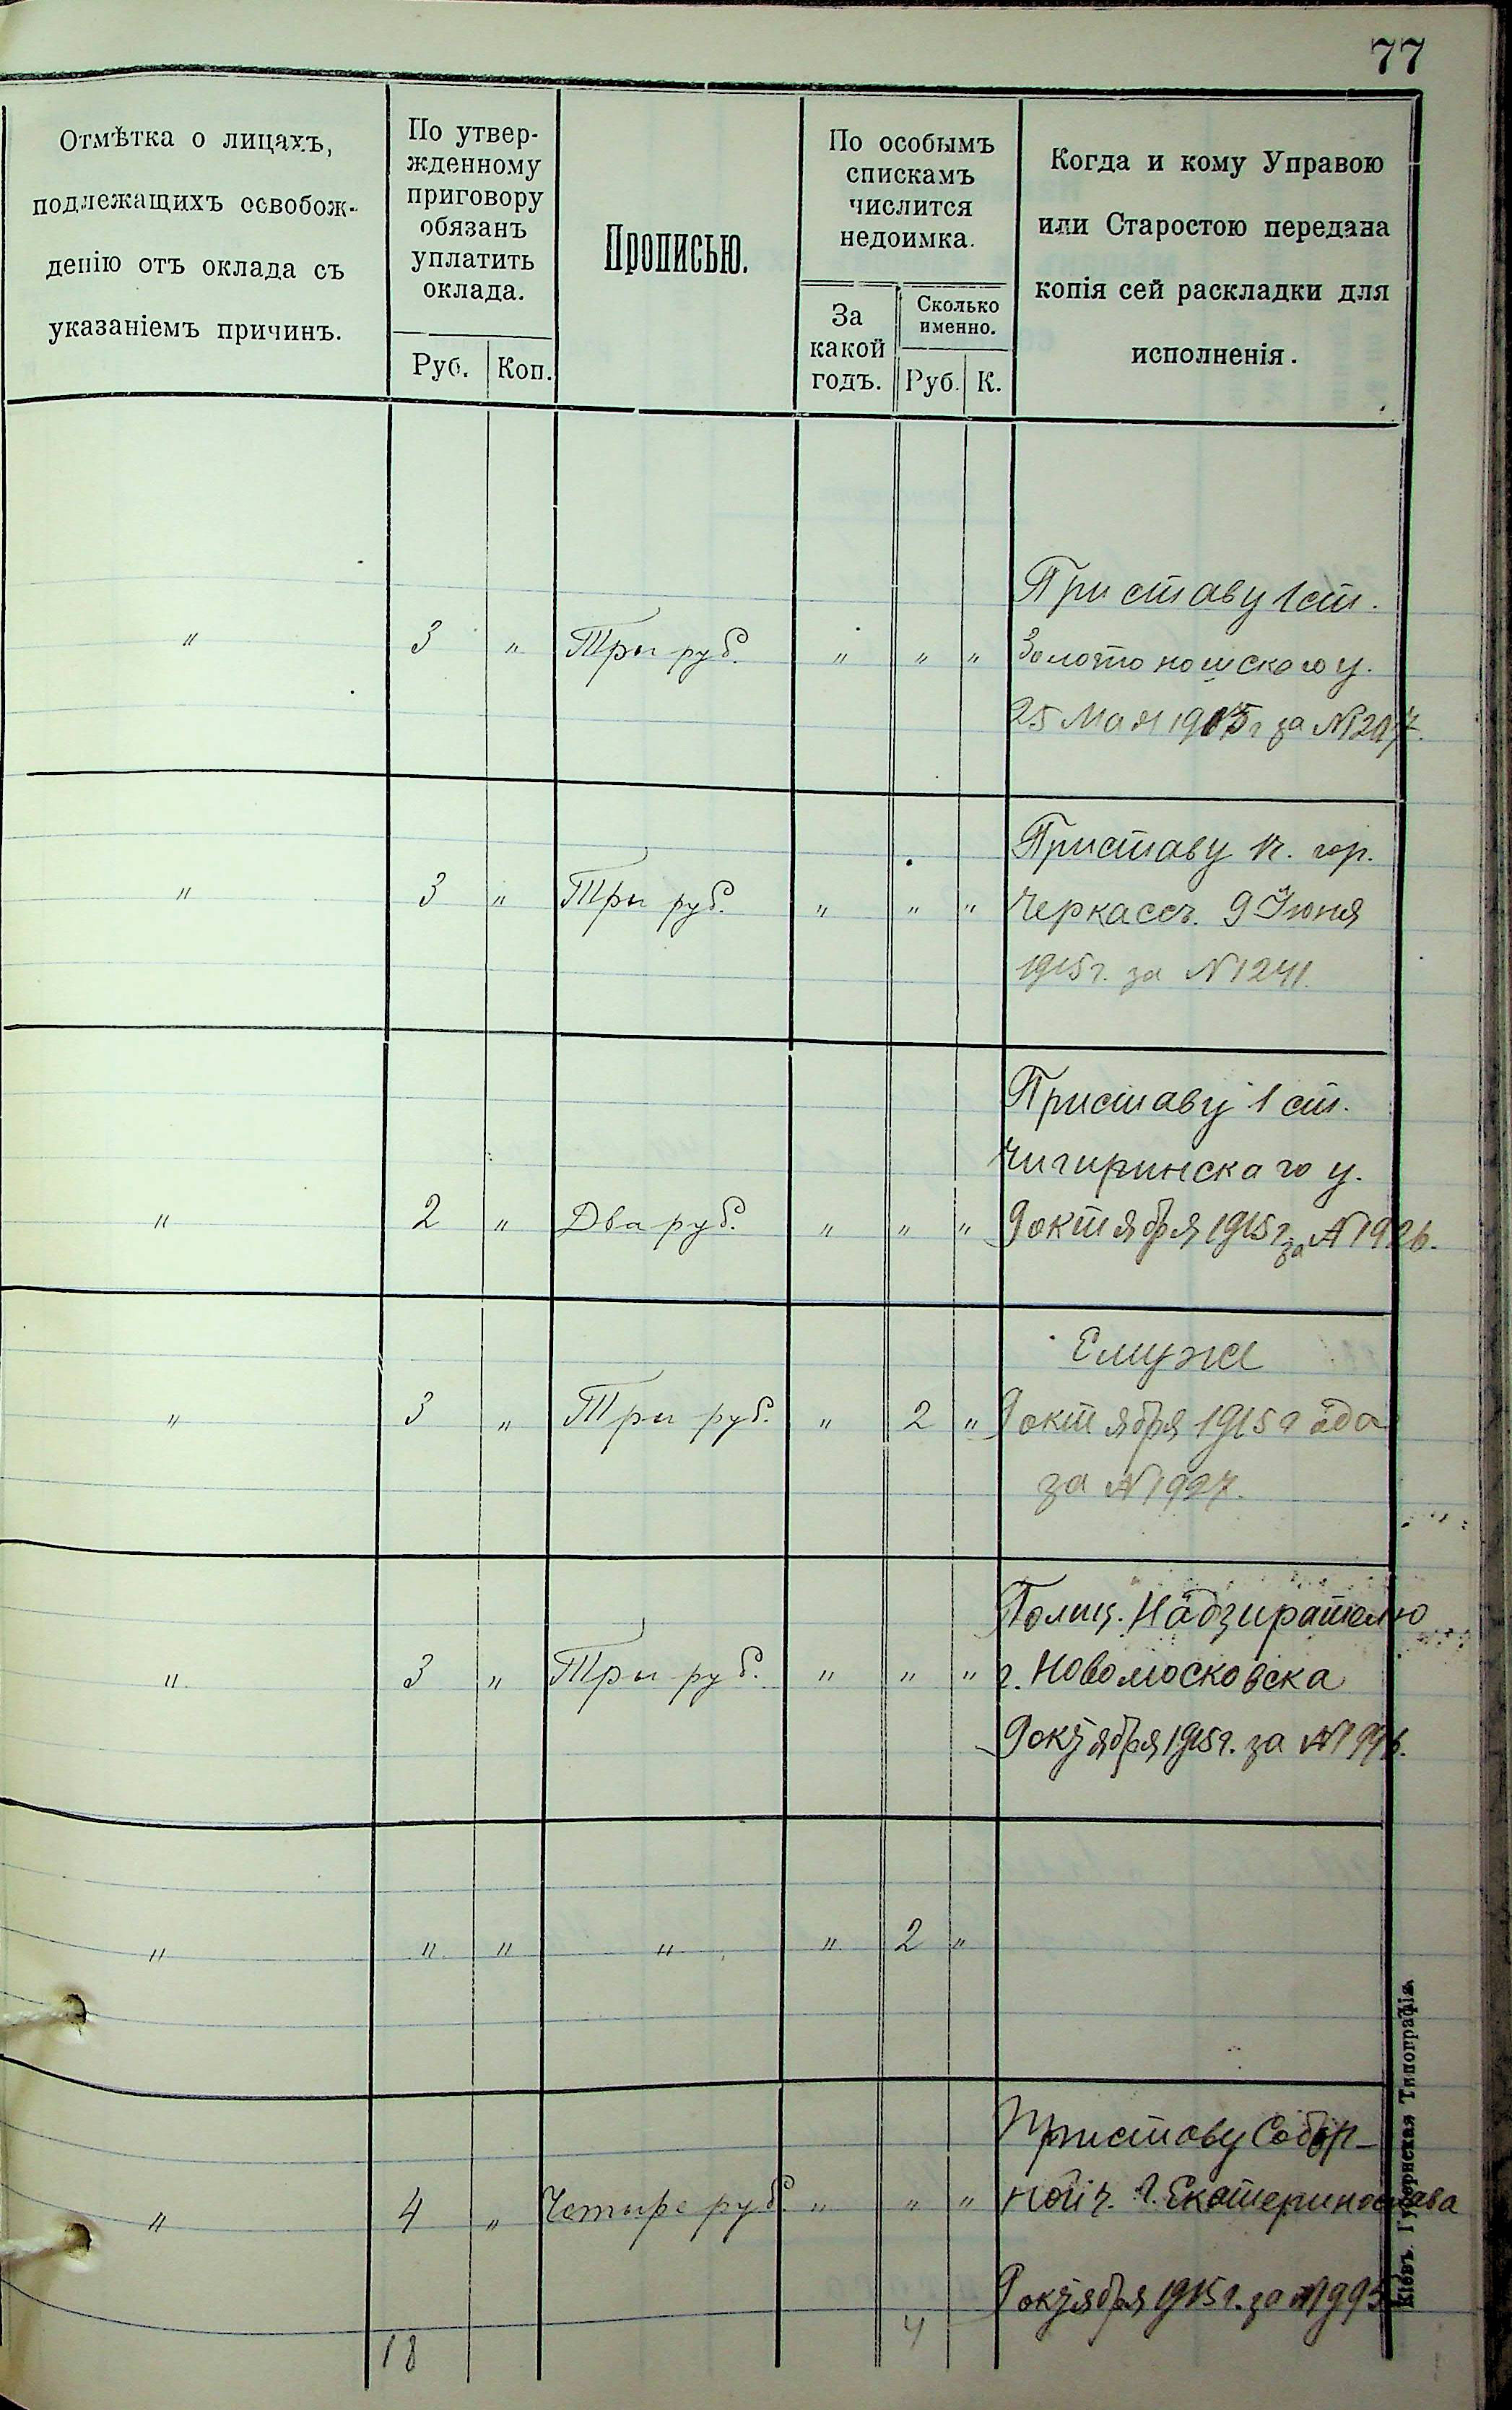 77
Отмѣтка о лицахъ,
подлежащихъ освобож-
денію отъ оклада съ
указаніемъ причинъ.
По утвер-
жденному
приговору
обязанъ
уплатить
оклада.
Руб. Коп.
Прописью.
По особымъ
спискамъ
числится
недоимка.
За
какой
годъ.
Сколько
именно.
Руб. К.
Когда и кому Управою
или Старостою передана
копія сей раскладки для
исполненія.
Приставу 1 ст.
" 3 " Три руб. " " " Золотоношского у.
25 Мая 1915 г за №
Приставу ч. гор.
" 3 " Три руб. " " " Черкассъ. 9 Іюня
1915 г. за № 1241.
Приставу 1 ст.
Чигиринскаго у.
" 2 " Два руб. " " " 9 октября 1915 г. за № 1926.
Ему же
" 3 " Три руб. " 2 " 9 октября 1915 года
за № 1927.
Полиц. Надзирателю
" 3 " Три руб. " " " г. Новомосковска
9 октября 1915 г. за №
" " " " " 2 "
Приставу Собор-
" 4 " Четыре руб. " " " ной ч. г. Екатеринослава
9 октября 1915 г. за №
18 4
Кіевъ. Губернская Типографія.